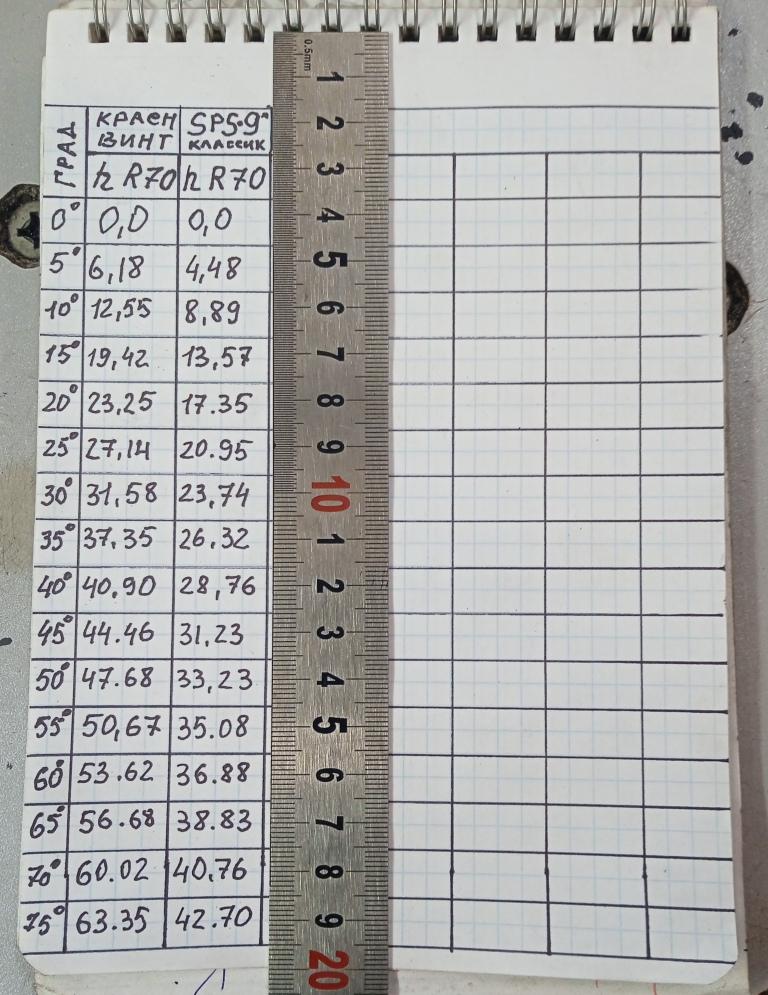 0.5mm
ГРАД КРАСН ВИНТ SP5.9" КЛАССИК
h R70 h R70
0° 0,0 0,0
5° 6,18 4,48
10° 12,55 8,89
15° 19,42 13,57
20° 23,25 17.35
25° 27,14 20.95
30° 31,58 23,74
35° 37.35 26,32
40° 40.90 28,76
45° 44.46 31,23
50° 47.68 33,23
55° 50,67 35.08
60° 53.62 36.88
65° 56.68 38.83
70° 60.02 40.76
75° 63.35 42.70
1
2
3
4
5
6
7
8
9
10
1
2
3
4
5
6
7
8
9
20